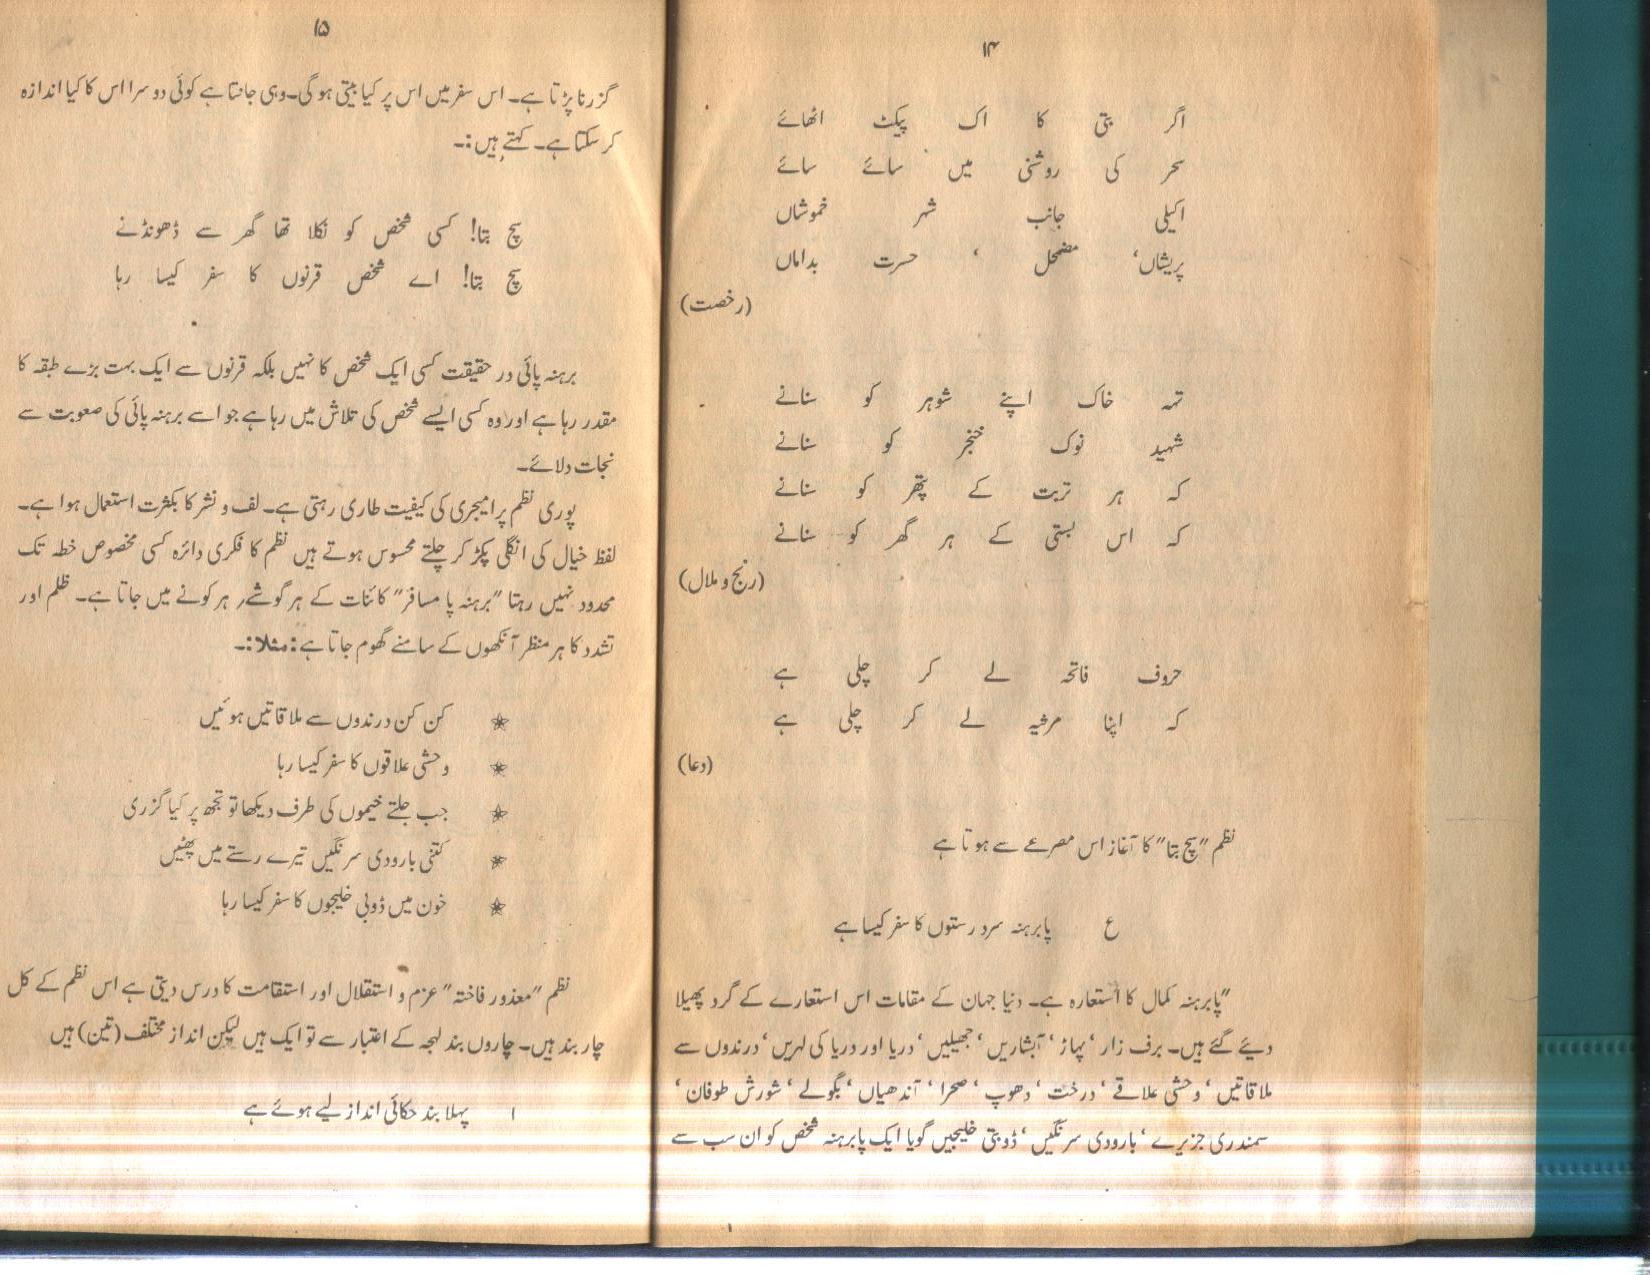 ۱۴
اگر بتی کا اک پیکٹ اٹھائے
سحر کی روشنی میں سائے سائے
اکیلی جانب شہر خموشاں
پریشاں‘ مضمحل ‘ حسرت بداماں
(رخصت)
تہہ خاک اپنے شوہر کو سنانے
شہید نوک خنجر کو سنانے
کہ ہر تربت کے پتھر کو سنانے
کہ اس بستی کے ہر گھر کو سنانے
(رنج و ملال)
حروف فاتحہ لے کر چلی ہے
کہ اپنا مرثیہ لے کر چلی ہے
(دعا)
نظم ”سچ بتا“ کا آغاز اس مصرعے سے ہوتا ہے
ع پابرہنہ سرد رستوں کا سفر کیسا ہے
”پابرہنہ کمال کا استعارہ ہے۔ دنیا جہان کے مقامات اس استعارے کے گرد پھیلا
دیئے گئے ہیں۔ برف زار‘ پہاڑ‘ آبشاریں‘ جھیلیں‘ دریا اور دریا کی لہریں‘ درندوں سے
ملاقاتیں‘ وحشی علاقے‘ درخت‘ دھوپ‘ صحرا‘ آندھیاں‘ بگولے‘ شورش طوفان‘
سمندری جزیرے‘ بارودی سرنگیں‘ ڈوبتی خلیجیں گویا ایک پابرہنہ شخص کو ان سب سے
۱۵
گزرنا پڑتا ہے۔ اس سفر میں اس پر کیا بیتی ہو گی۔ وہی جانتا ہے کوئی دوسرا اس کا کیا اندازہ
کر سکتا ہے۔ کہتے ہیں:۔
سچ بتا! کسی شخص کو نکلا تھا گھر سے ڈھونڈنے
سچ بتا! اے شخص قرنوں کا سفر کیسا رہا
برہنہ پائی در حقیقت کسی ایک شخص کا نہیں بلکہ قرنوں سے ایک بہت بڑے طبقہ کا
مقدر رہا ہے اور وہ کسی ایسے شخص کی تلاش میں رہا ہے جو اسے برہنہ پائی کی صعوبت سے
نجات دلائے۔
پوری نظم پر امیجری کی کیفیت طاری رہتی ہے۔ لف و نشر کا بکثرت استعمال ہوا ہے۔
لفظ خیال کی انگلی پکڑ کر چلتے محسوس ہوتے ہیں نظم کا فکری دائرہ کسی مخصوص خطہ تک
محدود نہیں رہتا ”برہنہ پا مسافر“ کائنات کے ہر گوشے، ہر کونے میں جاتا ہے۔ ظلم اور
تشدد کا ہر منظر آنکھوں کے سامنے گھوم جاتا ہے: مثلا:۔
٭ کن کن درندوں سے ملاقاتیں ہوئیں
٭ وحشی علاقوں کا سفر کیسا رہا
٭ جب جلتے خیموں کی طرف دیکھا تو تجھ پر کیا گزری
٭ کتنی بارودی سرنگیں تیرے رستے میں پھٹیں
٭ خون میں ڈوبی خلیجوں کا سفر کیسا رہا
نظم ”معذور فاختہ“ عزم و استقلال اور استقامت کا درس دیتی ہے اس نظم کے کل
چار بند ہیں۔ چاروں بند لہجہ کے اعتبار سے تو ایک ہیں لیکن انداز مختلف (تین) ہیں
۱ پہلا بند حکائی انداز لیے ہوئے ہے